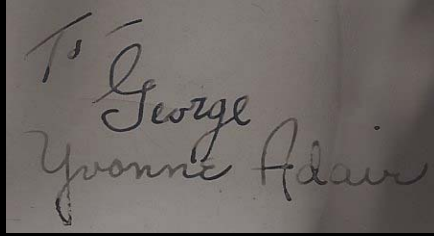 To
George
Yvonne Adair